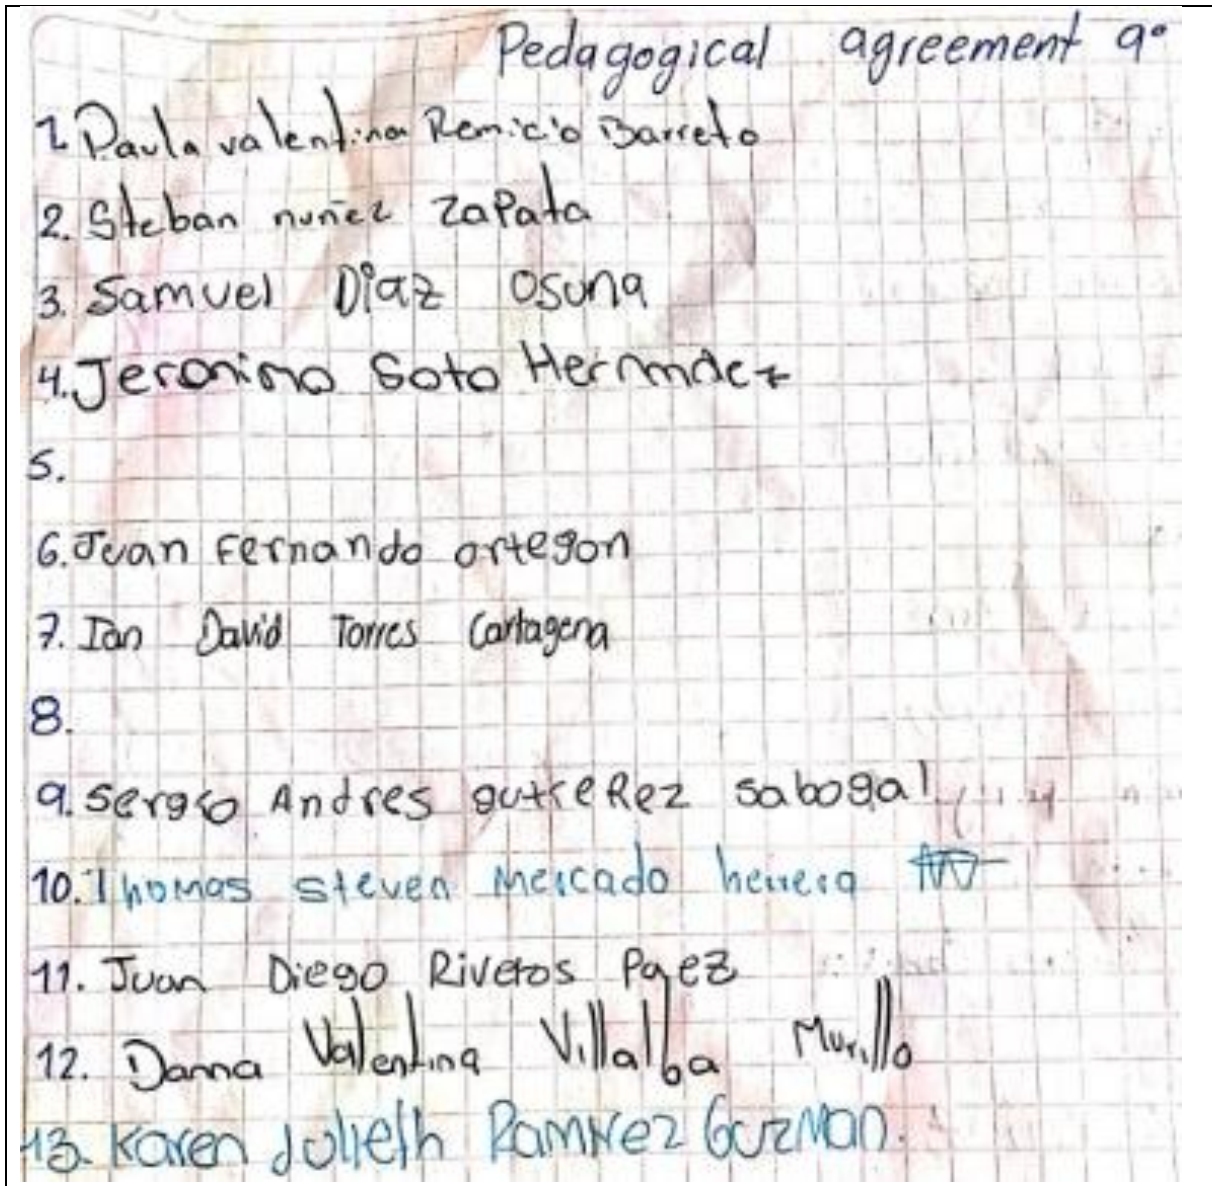 Pedagogical agreement 9°
1. Paula valentina Remicio Barreto
2. Steban nuñez zapata
3. Samuel Diaz Osuna
4. Jeronimo Soto Hernndez
5.
6. Juan Fernando ortegon
7. Ian David Torres Cartagena
8.
9. Sergio Andres gutieRez sabogal
10. Thomas steven mercado herrera
11. Juan Diego Riveros Paez
12. Danna Valentina Villalba Murillo
13. Karen Julieth Ramirez Guzman.